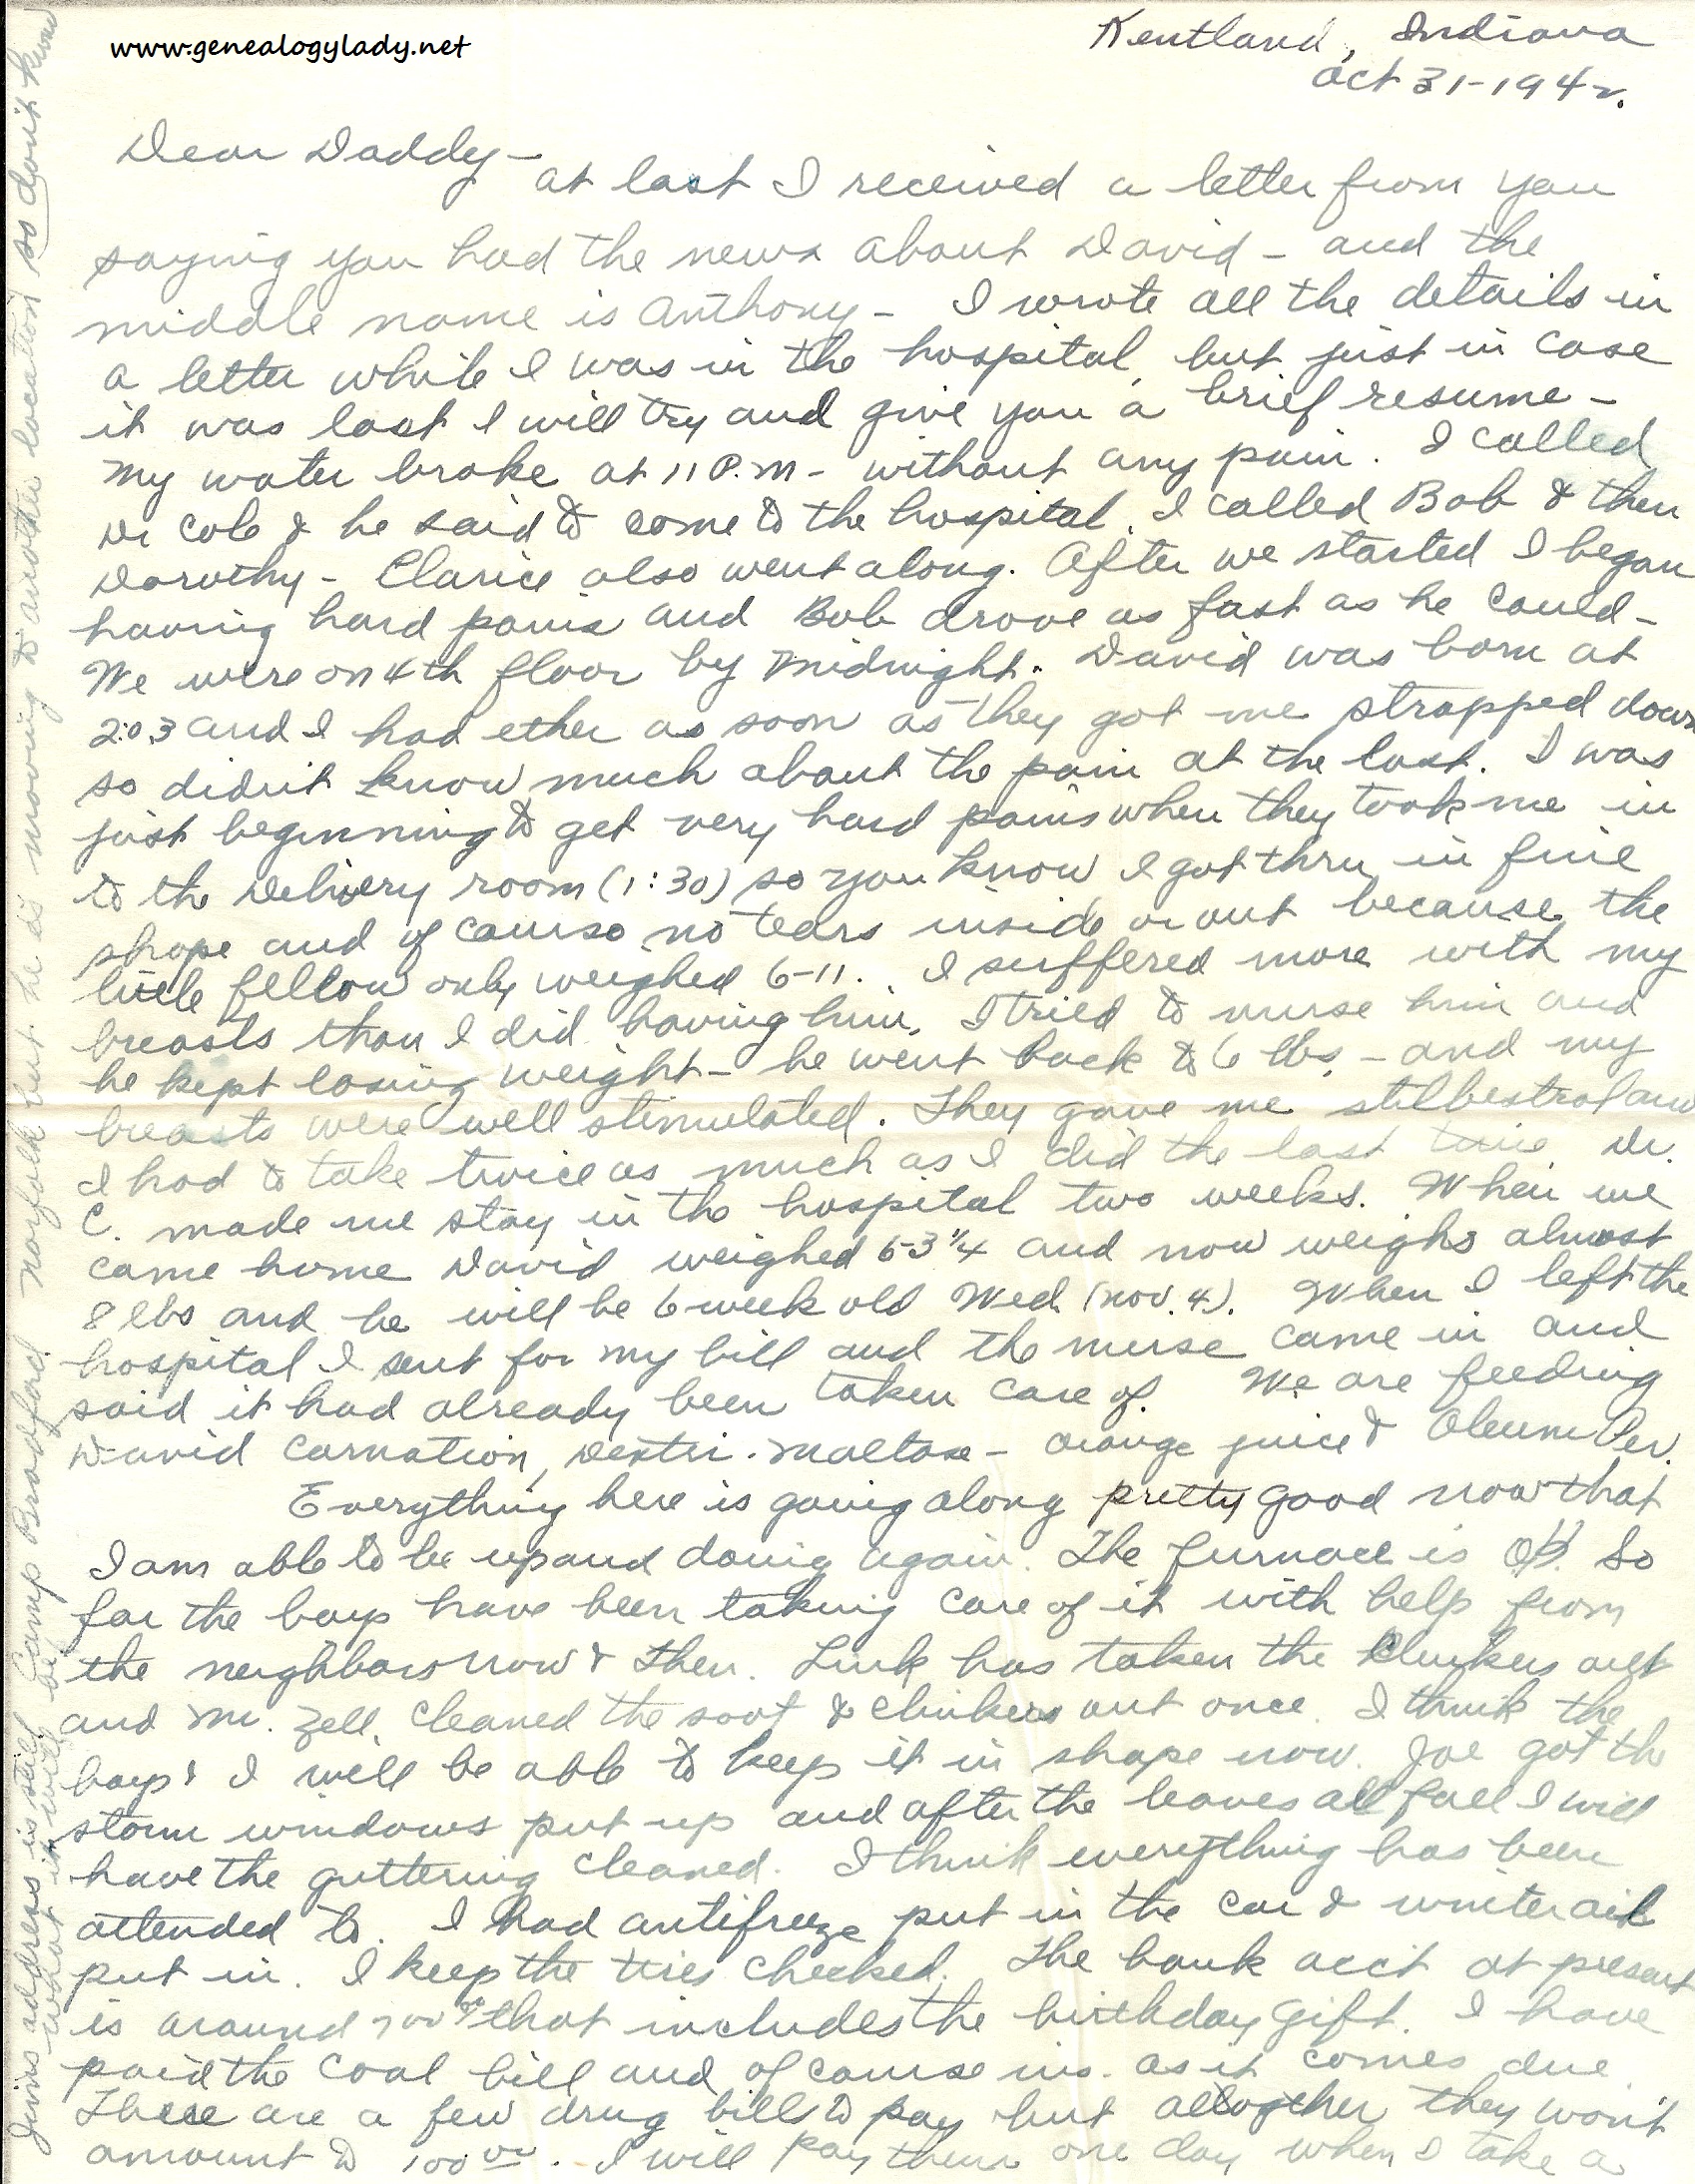 www.genealogylady.net
Kentland, Indiana
Oct 31-1942.
Dear Daddy -
at last I received a letter from you
saying you had the news about David - and the
middle name is Anthony - I wrote all the details in
a letter while I was in the hospital, but just in case
it was lost I will try and give you a brief resume -
My water broke at 11 P.M - without any pain. I called
Dr Cole & he said to come to the hospital. I called Bob & then
Dorothy - Clarice also went along. After we started I began
having hard pains and Bob drove as fast as he could -
We were on 4th floor by midnight. David was born at
2:03 and I had ether as soon as they got me strapped down
so didn't know much about the pain at the last. I was
just beginning to get very hard pains when they took me in
to the delivery room (1:30) so you know I got thru in fine
shape and of course no tears inside or out because the
little fellow only weighed 6-11. I suffered more with my
breasts than I did having him. I tried to nurse him and
he kept losing weight - he went back to 6 lbs. - and my
breasts were well stimulated. They gave me stilbestrol and
I had to take twice as much as I did the last time. Dr.
C. made me stay in the hospital two weeks. When we
came home David weighed 6-3 1/4 and now weighs almost
8 lbs and he will be 6 week old Wed. (Nov. 4). When I left the
hospital I sent for my bill and the nurse came in and
said it had already been taken care of. We are feeding
David Carnation, Dextri-Maltose - orange juice & Oleum Per.
Everything here is going along pretty good now that
I am able to be up and doing again. The furnace is OK. So
far the boys have been taking care of it with help from
the neighbors now & then. Link has taken the clinkers out
and Mr. Zell. cleaned the soot & clinkers out once. I think the
boys & I will be able to keep it in shape now. Joe got the
storm windows put up and after the leaves all fall I will
have the guttering cleaned. I think everything has been
attended to. I had antifreeze put in the car & winter oil
put in. I keep the tires checked. The bank acct at present
is around 700 00 that includes the birthday gift. I have
paid the coal bill and of course ins. as it comes due.
There are a few drug bills to pay but altogether they won't
amount to 100 00. I will pay them one day when I take a
Jim's address is still Camp Bradford Norfolk but he is moving to another location so don't know
what it will be